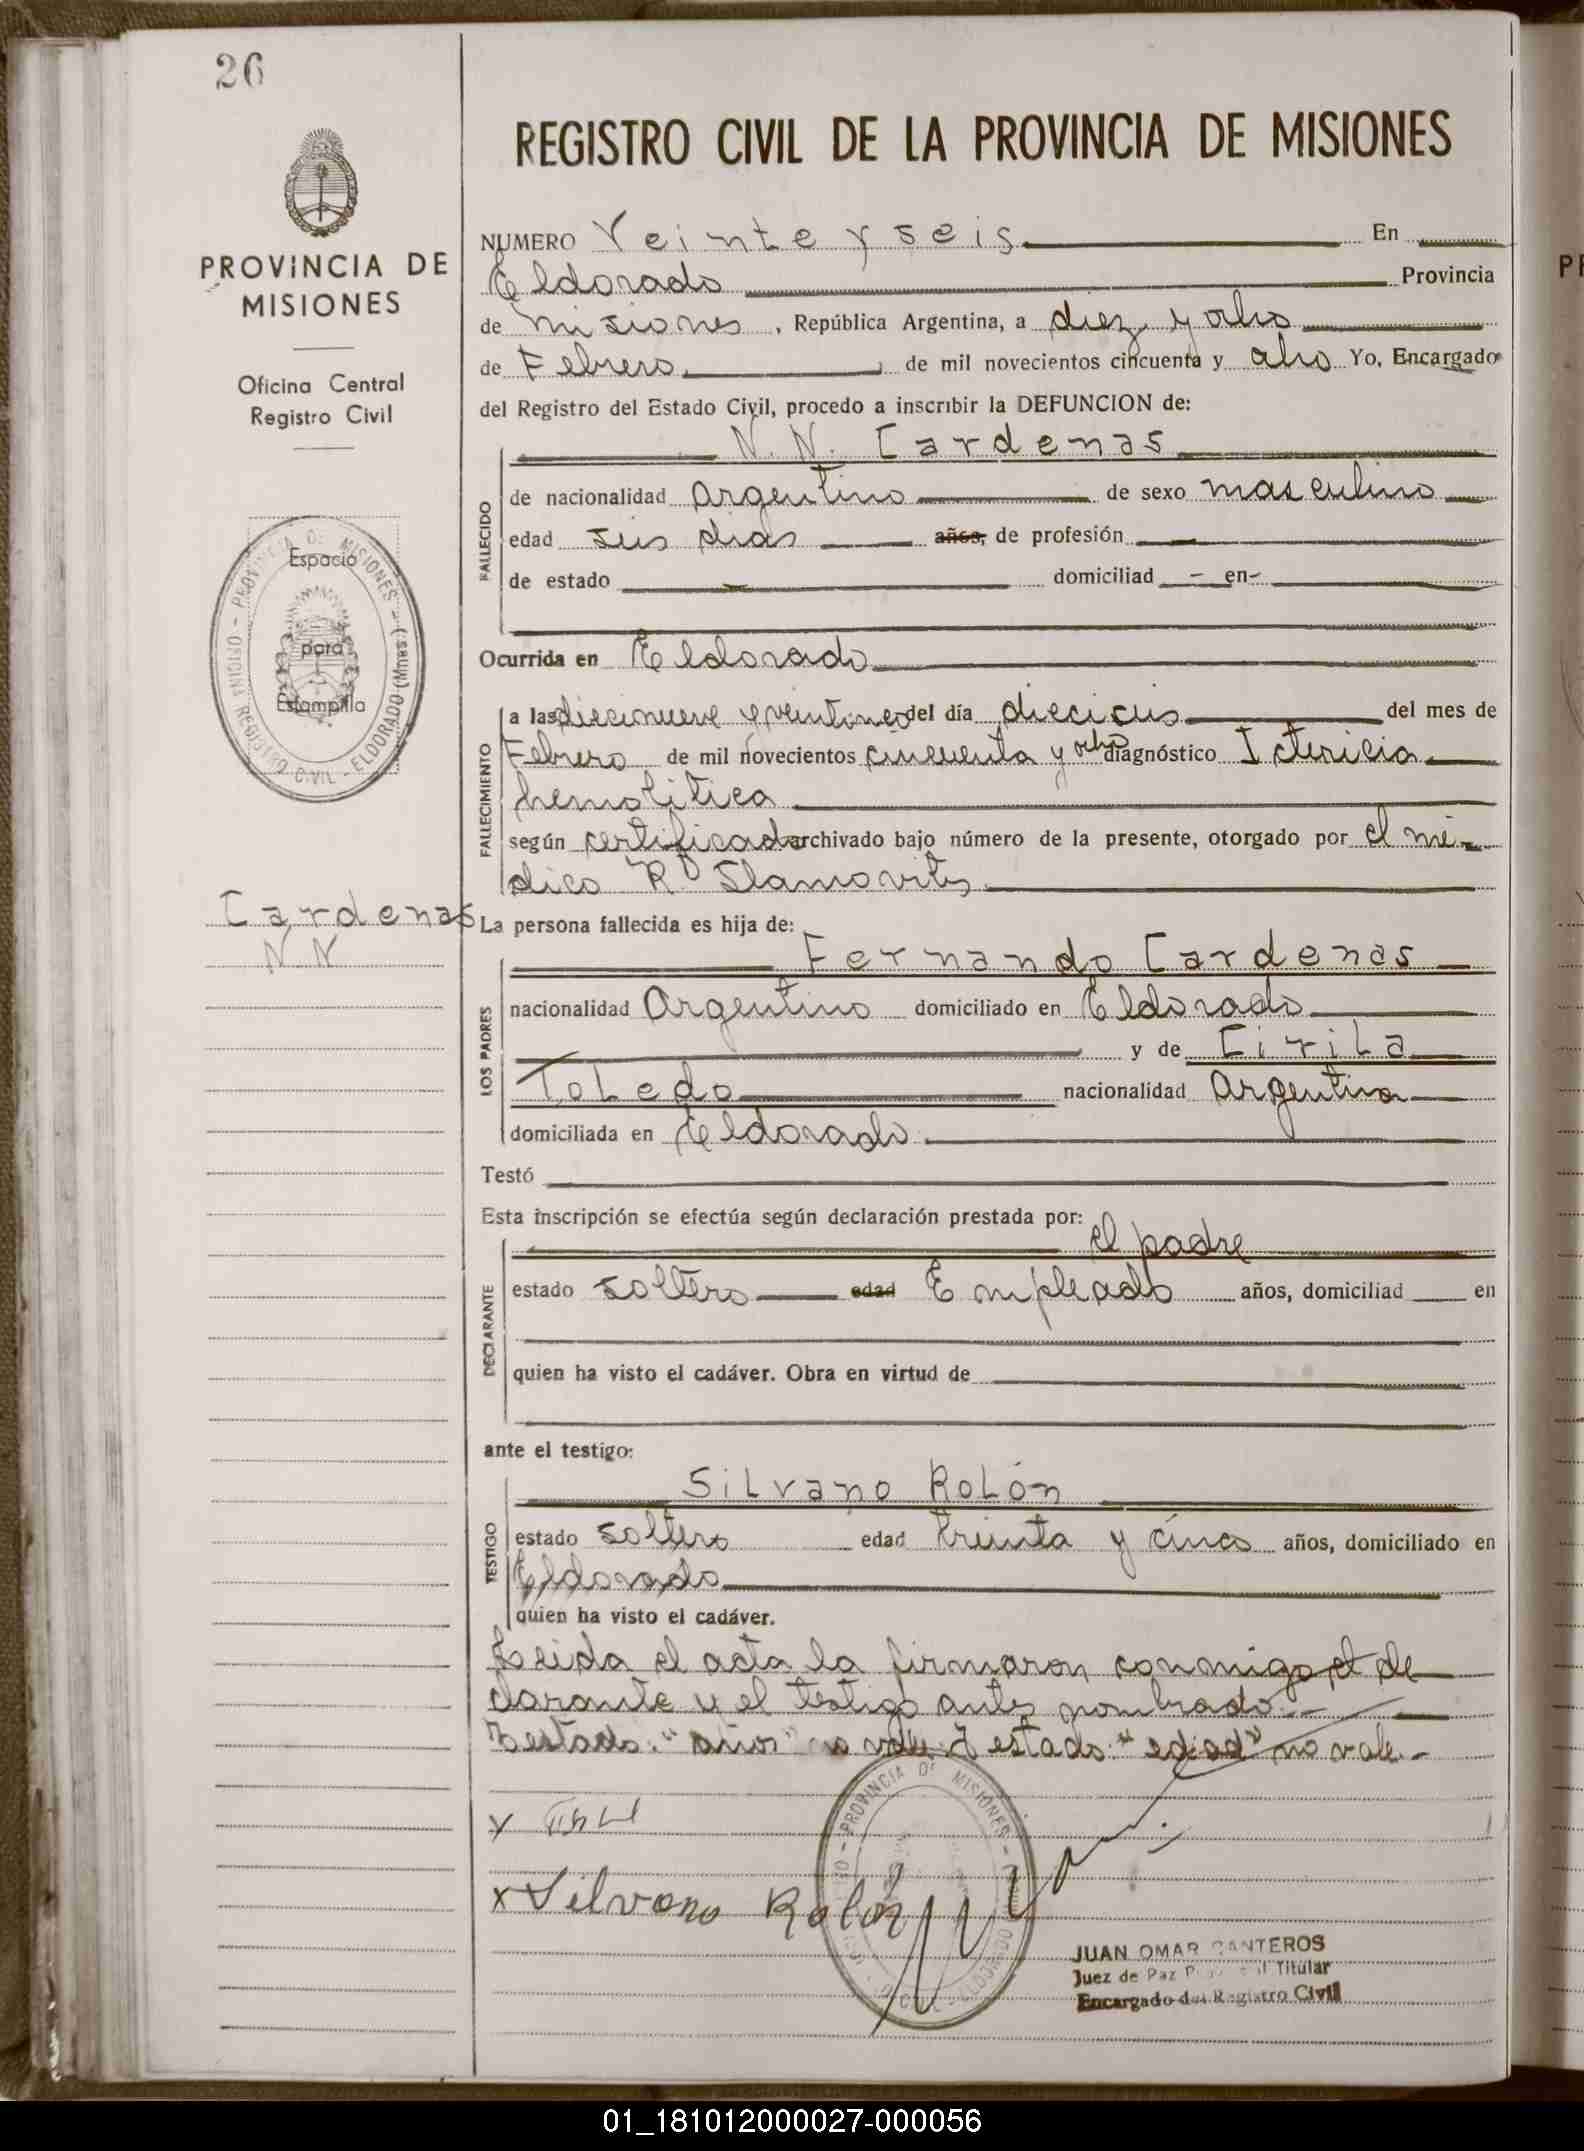 26
PROVINCIA DE
MISIONES
Oficina Central
Registro Civil
Espacio
para
Estampilla
Cardenas
N N
REGISTRO CIVIL DE LA PROVINCIA DE MISIONES
NUMERO Veinte y seis En
Eldorado Provincia
de Misiones, República Argentina, a diez y ocho
de Febrero de mil novecientos cincuenta y ocho Yo, Encargado
del Registro del Estado Civil, procedo a inscribir la DEFUNCION de:
N. N. Cardenas
FALLECIDO
de nacionalidad Argentino de sexo masculino
edad seis dias años, de profesión
de estado domiciliad - en -
Ocurrida en Eldorado
FALLECIMIENTO
a las diecinueve y veintineo del día dieciseis del mes de
Febrero de mil novecientos cincuenta y ocho diagnóstico Ictericia
hemolitica
según certificado archivado bajo número de la presente, otorgado por el mé-
dico R. Slamovits
La persona fallecida es hija de:
LOS PADRES
Fernando Cardenas
nacionalidad Argentino domiciliado en Eldorado
y de Cirila
Toledo nacionalidad Argentina
domiciliada en Eldorado
Testó
Esta inscripción se efectúa según declaración prestada por:
el padre
DECLARANTE
estado soltero edad Empleado años, domiciliad en
quien ha visto el cadáver. Obra en virtud de
ante el testigo:
Silvano Rolón
TESTIGO
estado soltero edad treinta y cinco años, domiciliado en
Eldorado
quien ha visto el cadáver.
Leida el acta la firmaron conmigo el de
clarante y el testigo antes nombrado.--
Testado: "años" no vale. Testado: "edad" no vale.-
x
x Silvano Rolón
JUAN OMAR CANTEROS
Juez de Paz Titular
Encargado del Registro Civil
01_181012000027-000056